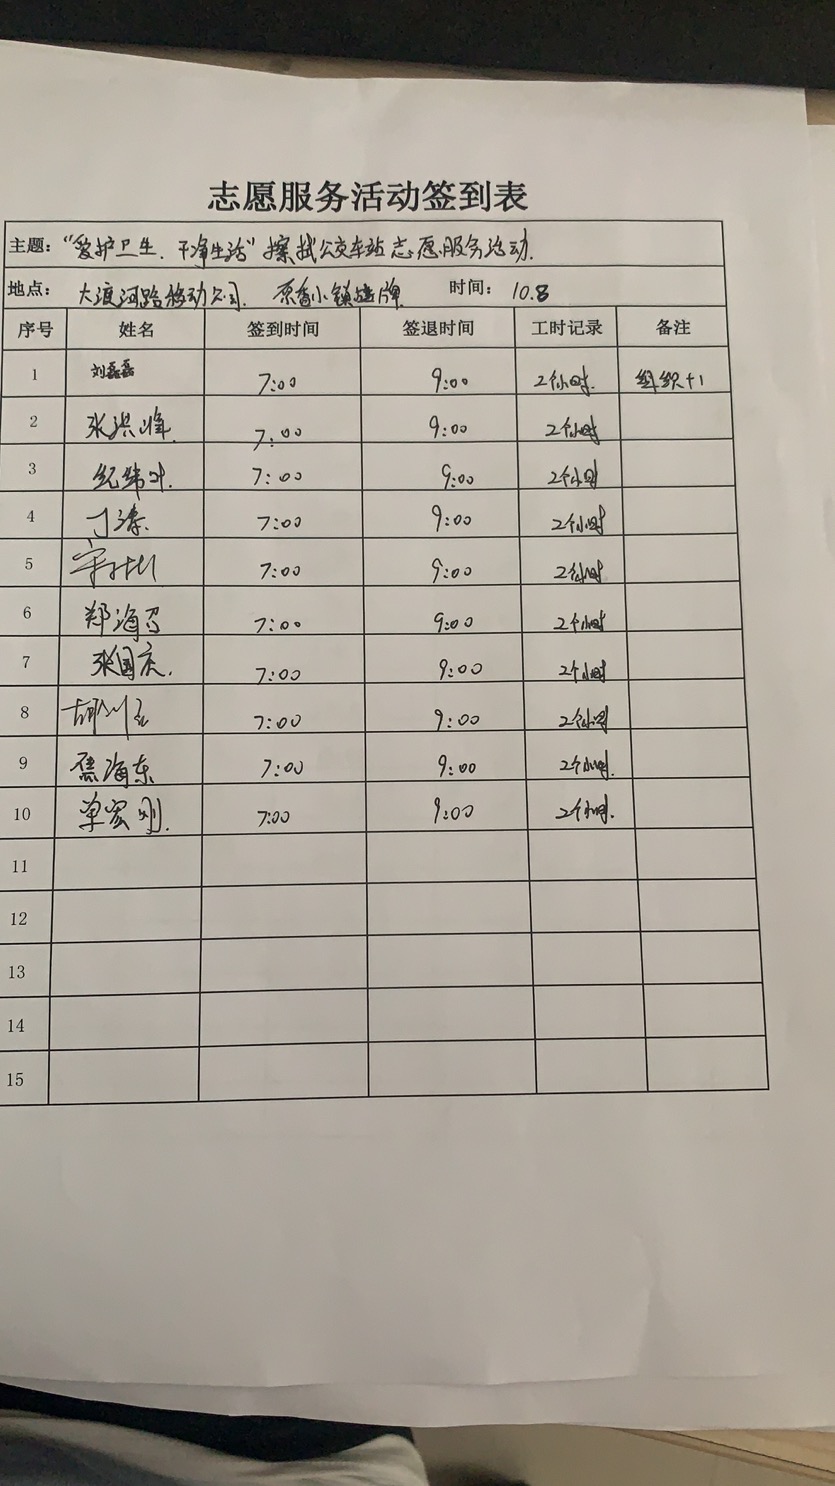 志愿服务活动签到表
主题："爱护卫生.干净生活"擦拭公交车站志愿服务活动.
地点：大渡河路移动公司.原香小镇站牌 时间：10.8
序号 姓名 签到时间 签退时间 工时记录 备注
1 刘磊磊 7:00 9:00 2个小时. 组织+1
2 张洪峰. 7:00 9:00 2个小时
3 纪纬 7:00 9:00 2个小时
4 丁涛. 7:00 9:00 2个小时
5 7:00 9:00 2个小时
6 郑海 7:00 9:00 2个小时
7 张国庆. 7:00 9:00 2个小时
8 7:00 9:00 2个小时
9 焦海东 7:00 9:00 2个小时.
10 单宏刚. 7:00 9:00 2个小时.
11
12
13
14
15